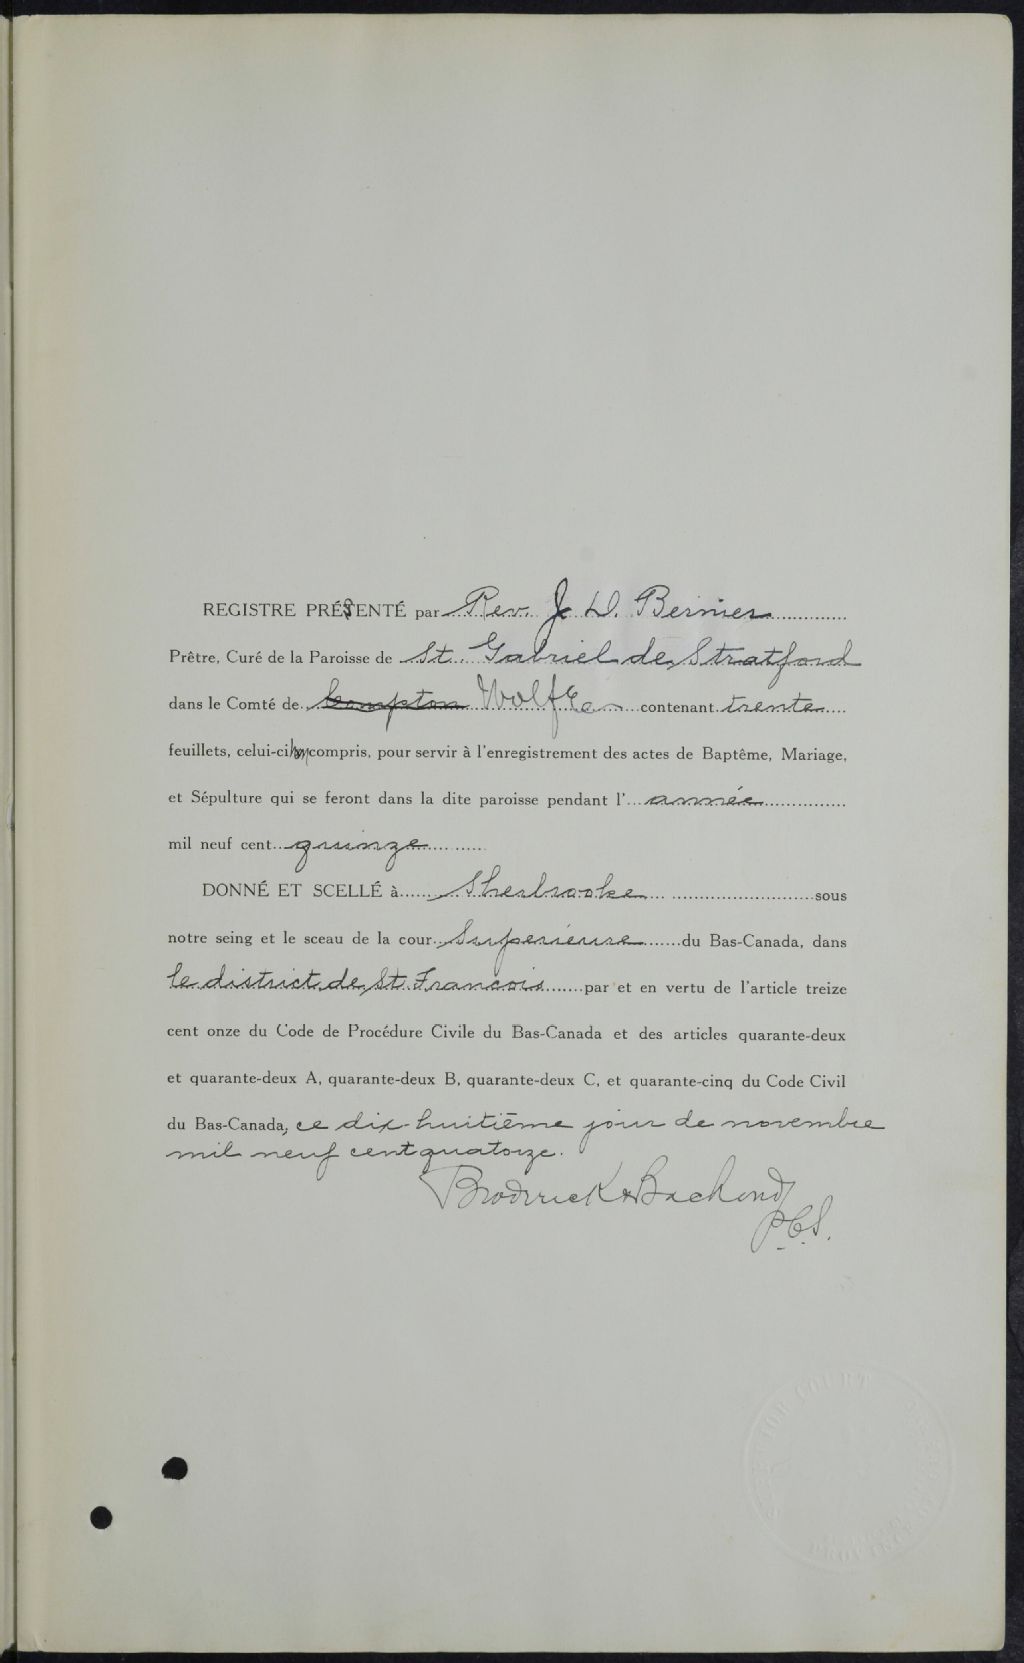 REGISTRE PRÉSENTÉ par Rev. J. D. Bernier
Prêtre, Curé de la Paroisse de St. Gabriel de Stratford
dans le Comté de Compton Wolfe contenant trente
feuillets, celui-ci compris, pour servir à l'enregistrement des actes de Baptême, Mariage,
et Sépulture qui se feront dans la dite paroisse pendant l'année
mil neuf cent quinze
DONNÉ ET SCELLÉ à Sherbrooke sous
notre seing et le sceau de la cour Superieure du Bas-Canada, dans
le district de St. Francois par et en vertu de l'article treize
cent onze du Code de Procédure Civile du Bas-Canada et des articles quarante-deux
et quarante-deux A, quarante-deux B, quarante-deux C, et quarante-cinq du Code Civil
du Bas-Canada, ce dix-huitième jour de novembre
mil neuf cent quatorze.
Broderick & Bachand
P.C.S.
SUPERIOR COURT
PROVINCE